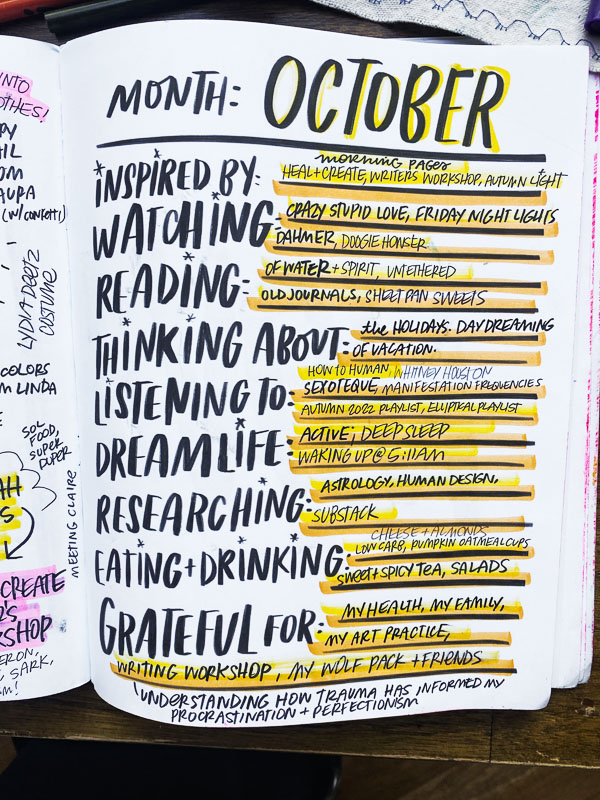 INTO
OTHES!
PY
HIL
OM
AURA
(W/CONFETTI)
LYDIA DEETZ
COSTUME
COLORS
M LINDA
SOL
FOOD,
SUPER
DUPER
AH
S
MEETING CLAIRE
CREATE
R'S
KSHOP
ERON,
, SARK,
M!
MONTH: OCTOBER
MORNING PAGES
INSPIRED BY: HEAL+CREATE, WRITERS WORKSHOP, AUTUMN LIGHT
WATCHING: CRAZY STUPID LOVE, FRIDAY NIGHT LIGHTS
DAHMER, DOOGIE HOWSER
READING: OF WATER + SPIRIT, UNTETHERED
OLD JOURNALS, SHEET PAN SWEETS
THINKING ABOUT: the HOLIDAYS. DAYDREAMING
OF VACATION.
HOW TO HUMAN, WHITNEY HOUSTON
LISTENING TO: SEXOTEQUE, MANIFESTATION FREQUENCIES
AUTUMN 2022 PLAYLIST, ELLIPTICAL PLAYLIST
DREAMLIFE: ACTIVE; DEEP SLEEP
WAKING UP @ 5:11AM
RESEARCHING: ASTROLOGY, HUMAN DESIGN,
SUBSTACK
CHEESE + ALMONDS
EATING + DRINKING: LOW CARB, PUMPKIN OATMEAL CUPS
SWEET + SPICY TEA, SALADS
GRATEFUL FOR: MY HEALTH, MY FAMILY,
MY ART PRACTICE,
WRITING WORKSHOP, MY WOLF PACK + FRIENDS
UNDERSTANDING HOW TRAUMA HAS INFORMED MY
PROCRASTINATION + PERFECTIONISM